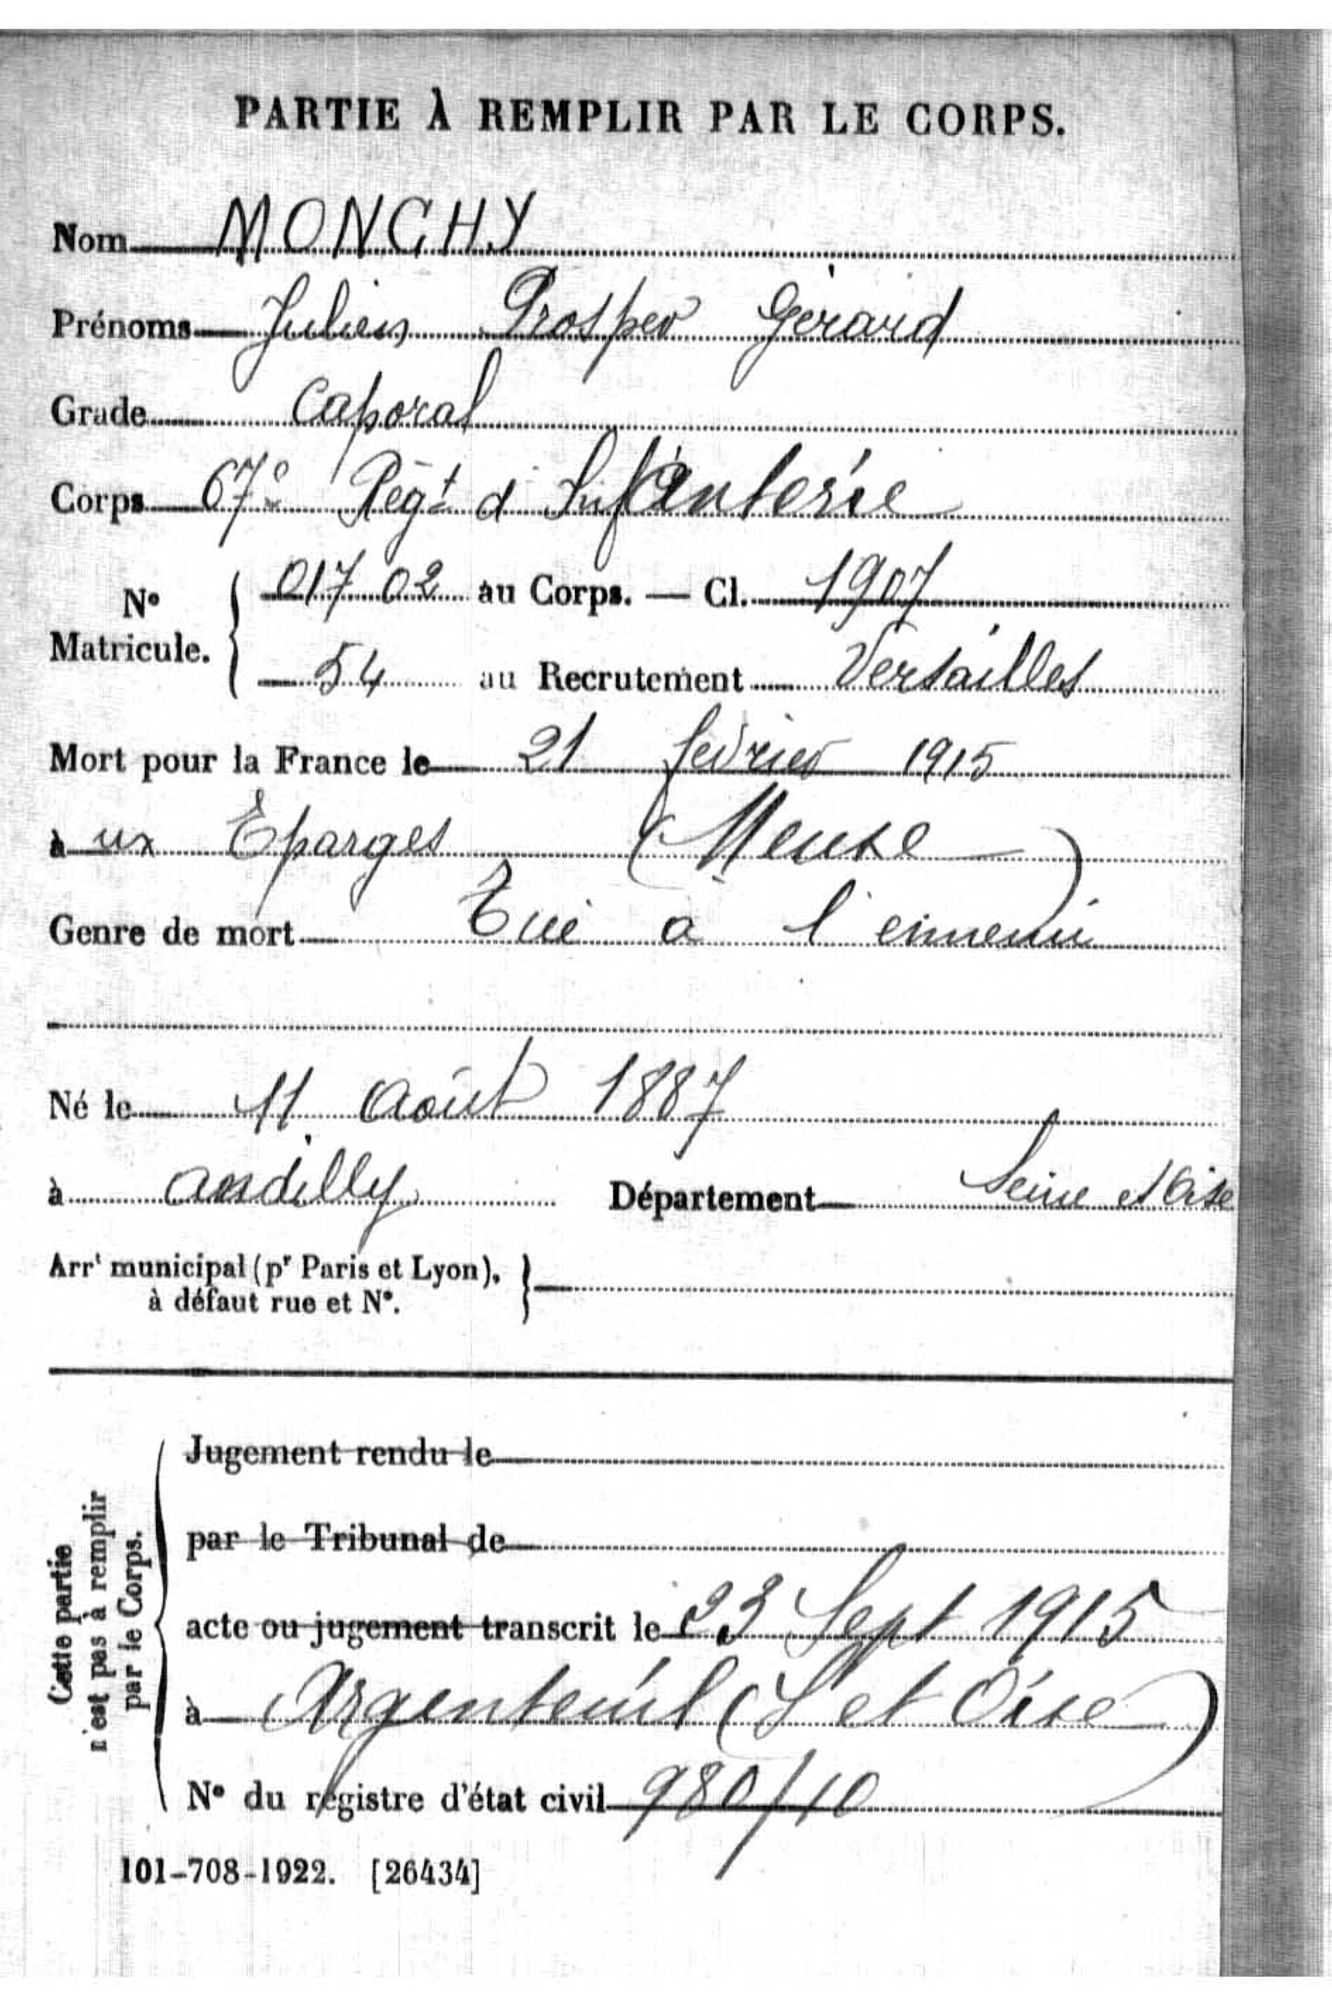 PARTIE À REMPLIR PAR LE CORPS.
Nom MONCHY
Prénoms Julien Prosper Gérard
Grade Caporal
Corps 67e Régt d'Infanterie
No Matricule. 01702 au Corps. — Cl. 1907
54 au Recrutement Versailles
Mort pour la France le 21 février 1915
à ux Eparges (Meuse)
Genre de mort Tué a l'ennemi
Né le 11 Août 1887
à Andilly Département Seine et Oise
Arrt municipal (pr Paris et Lyon),
à défaut rue et No.
Cette partie
n'est pas à remplir
par le Corps.
Jugement rendu le
par le Tribunal de
acte ou jugement transcrit le 23 Sept 1915
à Argenteuil (S et Oise)
No du registre d'état civil 980/10
101-708-1922. [26434]